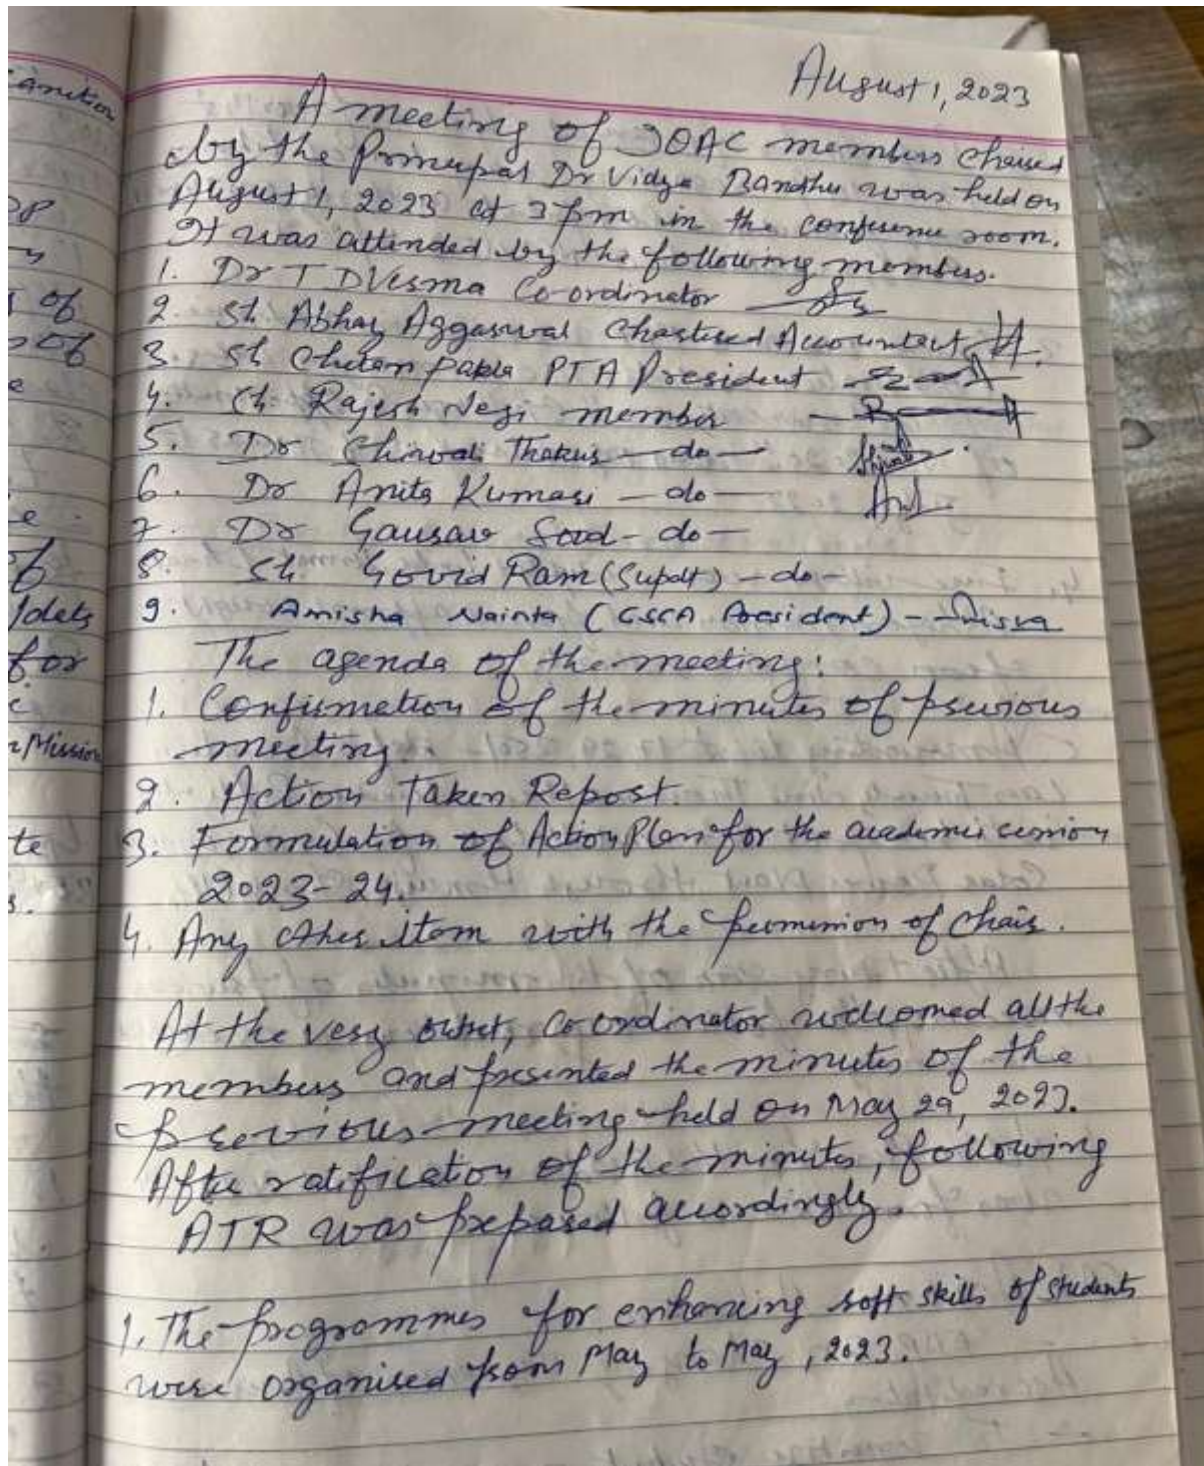 August 1, 2023
A meeting of IQAC members chaired
by the Principal Dr Vidya Bandhu was held on
August 1, 2023 at 3 pm in the conference room.
It was attended by the following members.
1. Dr T D Verma Co-ordinator
2. Sh Abhay Aggarwal Chartered Accountant
3. Sh Chetan PTA President
4. Sh Rajesh Negi member
5. Dr Shivali Thakur - do -
6. Dr Anita Kumari - do -
7. Dr Gaurav Sood - do -
8. Sh Govid Ram (Supdt) - do -
9. Amisha Nainta (CSCA President) -
The agenda of the meeting:
1. Confirmation of the minutes of previous
meeting
2. Action Taken Report.
3. Formulation of Action Plan for the academic session
2023-24.
4. Any other item with the permission of Chair.
At the very outset, co-ordinator welcomed all the
members and presented the minutes of the
previous meeting held on May 29, 2023.
After ratification of the minutes, following
ATR was prepared accordingly.
1. The programmes for enhancing soft skills of students
were organised from May to May, 2023.
of
of
e
e.
of
for
Mission
te
s.